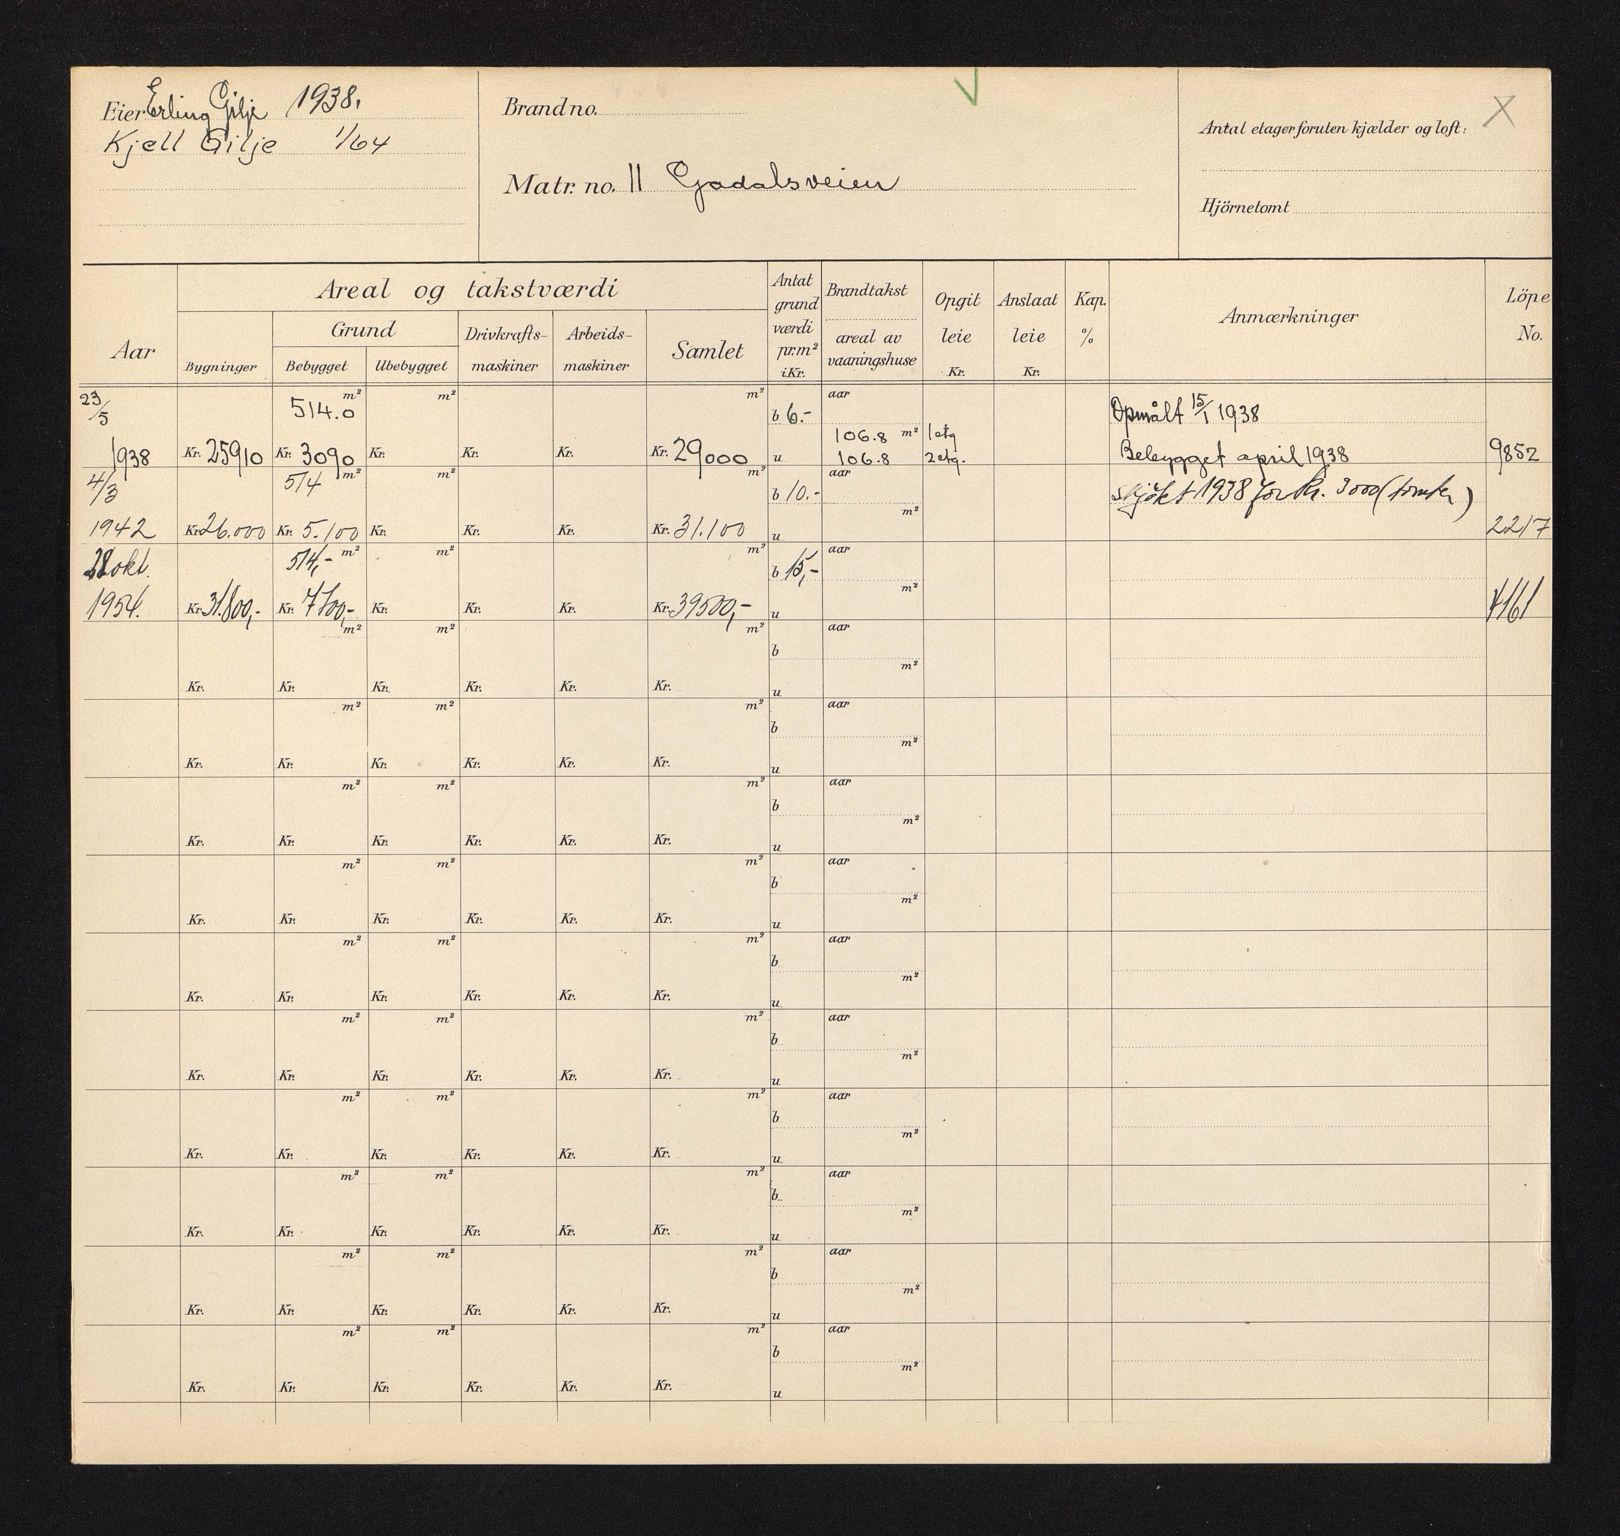 Eier Erling Gilje 1938.
Kjell Gilje 1/64
Brand no.
Matr. no. 11 Gadalsveien
Antal etager foruten kjælder og loft: X
Hjörnetomt
Areal og takstværdi
Aar
Bygninger
Grund
Bebygget
Ubebygget
Drivkrafts-
maskiner
Arbeids-
maskiner
Samlet
Antat
grund
værdi
pr. m²
i Kr.
Brandtakst
areal av
vaaningshuse
Opgit
leie
Kr.
Anslaat
leie
Kr.
Kap.
%
Anmærkninger
Löpe
No.
23/5 514.0 m² m² m² b 6.- aar Opmålt 15/1 1938
106.8 m² 1 etg
1938 Kr. 25910 Kr. 3090 Kr. Kr. Kr. Kr. 29000 u 106.8 2 etg. Bebygget april 1938 9852
4/3 514 m² m² m² b 10.- aar Skjøtet 1938 for kr. 3000 (tomten)
m²
1942 Kr. 26.000 Kr. 5.100 Kr. Kr. Kr. Kr. 31.100 u 2217
28 okt. 514,- m² m² m² b 15,- aar
m²
1954. Kr. 31.800,- Kr. 7700,- Kr. Kr. Kr. Kr. 39500,- u 4161
m² m² m² aar
b
m²
Kr. Kr. Kr. Kr. Kr. Kr. u
m² m² m² aar
b
m²
Kr. Kr. Kr. Kr. Kr. Kr. u
m² m² m² aar
b
m²
Kr. Kr. Kr. Kr. Kr. Kr. u
m² m² m² aar
b
m²
Kr. Kr. Kr. Kr. Kr. Kr. u
m² m² m² aar
b
m²
Kr. Kr. Kr. Kr. Kr. Kr. u
m² m² m² aar
b
m²
Kr. Kr. Kr. Kr. Kr. Kr. u
m² m² m² aar
b
m²
Kr. Kr. Kr. Kr. Kr. Kr. u
m² m² m² aar
b
m²
Kr. Kr. Kr. Kr. Kr. Kr. u
m² m² m² aar
b
m²
Kr. Kr. Kr. Kr. Kr. Kr. u
m² m² m² aar
b
m²
Kr. Kr. Kr. Kr. Kr. Kr. u